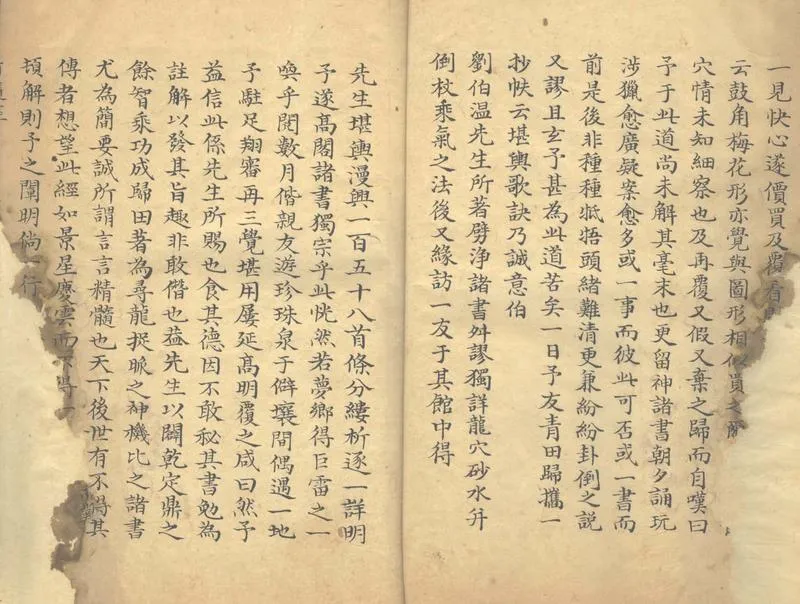 一見快心遂價買及覆看
云鼓角梅花形亦覺與圖形相似買之
穴情未知細察也及再覆又假又棄之歸而自嘆曰
予于此道尚未解其毫末也更留神諸書朝夕誦玩
涉獵愈廣疑案愈多或一事而彼此可否或一書而
前是後非種種牴牾頭緒難清更兼紛紛卦倒之説
又謬且玄予甚為此道苦矣一日予友青田歸攜一
抄帙云堪輿歌訣乃誠意伯
劉伯温先生所著劈浄諸書舛謬獨詳龍穴砂水并
倒杖乘氣之法後又緣訪一友于其館中得
先生堪輿漫興一百五十八首條分縷析逐一詳明
予遂高閣諸書獨宗乎此恍然若夢鄉得巨雷之一
喚乎閱數月偕親友遊珍珠泉于僻壤間偶遇一地
予駐足翔審再三覺堪用屢延高明覆之咸曰然予
益信此係先生所賜也食其德因不敢秘其書勉為
註解以發其旨趣非敢僭也葢先生以闢乾定鼎之
餘智乘功成歸田著為尋龍捉脈之神機比之諸書
尤為簡要誠所謂言言精髓也天下後世有不得其
傳者想望此經如景星慶雲而下得一
頓解則予之闡明倘一行